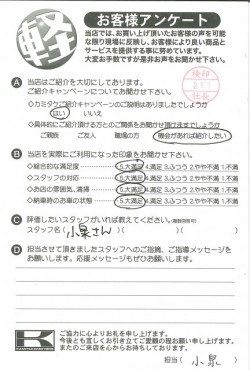 軽
お客様アンケート
当店では、お買い上げ頂いたお客様の声を可能
な限り現場に反映し、お客様により良い商品と
サービスを提供する事に努めています。
大変お手数ですが是非お声をお聞かせ下さい。
A 当店はご紹介を大切にしております。
ご紹介キャンペーンについてお聞かせ下さい。
検印
社長
◇カミタケご紹介キャンペーンのご説明はありましたでしょうか
はい いいえ
◇具体的にご紹介頂ける方とのご関係をお聞かせ頂けますでしょうか
ご親族 ご友人 職場の方 機会があれば紹介したい
B 当店を実際にご利用になった印象をお聞かせ下さい。
◇総合的な満足度 5.大満足 4.満足 3.ふつう 2.やや不満 1.不満
◇スタッフの対応 5.大満足 4.満足 3.ふつう 2.やや不満 1.不満
◇お店の雰囲気、清掃 5.大満足 4.満足 3.ふつう 2.やや不満 1.不満
◇納車時のお車の状態 5.大満足 4.満足 3.ふつう 2.やや不満 1.不満
C 評価したいスタッフがいれば教えてください。
スタッフ名( 小泉さん )( )( )
D 担当させて頂きましたスタッフへのご指摘、ご指導メッセージを
お願いします。応援メッセージもぜひお願いします。
K
ご協力に心よりお礼を申し上げます。
今後とも宜しくお引き立てご愛顧の程お願い申し上げます。
またのご来店を心からお待ちしております。
担当( 小泉 )